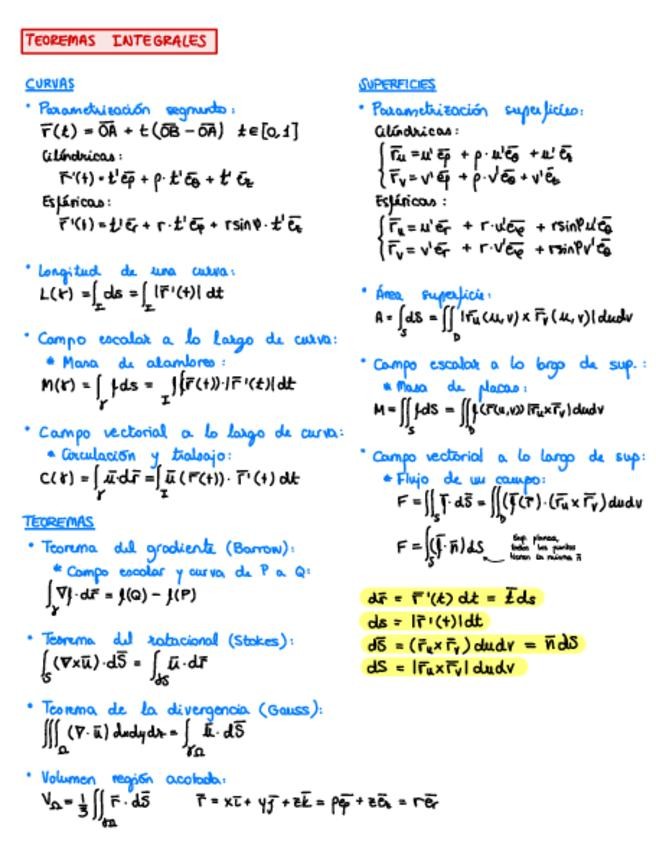 TEOREMAS INTEGRALES
CURVAS
• Parametrización segmento:
r̄(t) = OA̅ + t(OB̅ - OA̅) t ∈ [0,1]
Cilíndricas:
r̄'(t) = t'ēρ + ρ·t'ēθ + t'ēz
Esféricas:
r̄'(t) = t'ēr + r·t'ēφ + r sinφ·t'ēz
• Longitud de una curva:
L(γ) = ∫_I ds = ∫_I |r̄'(t)| dt
• Campo escalar a lo largo de curva:
* Masa de alambres:
M(γ) = ∫_γ f ds = ∫_I f(r̄(t))·|r̄'(t)| dt
• Campo vectorial a lo largo de curva:
* Circulación y trabajo:
C(γ) = ∫_γ ū·dr̄ = ∫_I ū(r̄(t))·r̄'(t) dt
TEOREMAS
• Teorema del gradiente (Barrow):
* Campo escalar y curva de P a Q:
∫_γ ∇f·dr̄ = f(Q) - f(P)
• Teorema del rotacional (Stokes):
∫_S (∇×ū)·dS̄ = ∫_∂S ū·dr̄
• Teorema de la divergencia (Gauss):
∭_Ω (∇·ū) dxdydz = ∫_∂Ω ū·dS̄
• Volumen región acotada:
V_Ω = 1/3 ∬_∂Ω r̄·dS̄ r̄ = xī + yj̄ + zk̄ = ρēρ + zēz = rēr
SUPERFICIES
• Parametrización superficies:
Cilíndricas:
{ r̄u = u'ēρ + ρ·u'ēθ + u'ēz
r̄v = v'ēρ + ρ·v'ēθ + v'ēz
Esféricas:
{ r̄u = u'ēr + r·u'ēφ + r sinφ u'ēθ
r̄v = v'ēr + r·v'ēφ + r sinφ v'ēθ
• Área superficie:
A = ∫_S dS = ∬_D |r̄u(u,v) × r̄v(u,v)| dudv
• Campo escalar a lo largo de sup.:
* Masa de placas:
M = ∬_S f dS = ∬_D f(r̄(u,v)) |r̄u×r̄v| dudv
• Campo vectorial a lo largo de sup:
* Flujo de un campo:
F = ∬_S f̄·dS̄ = ∬_D (f̄(r̄)·(r̄u × r̄v) dudv
F = ∫_S (f̄·n̄) dS
Sup. planas,
todos los puntos
tienen la misma n̄
dr̄ = r̄'(t) dt = t̄ ds
ds = |r̄'(t)| dt
dS̄ = (r̄u × r̄v) dudv = n̄ dS
dS = |r̄u×r̄v| dudv